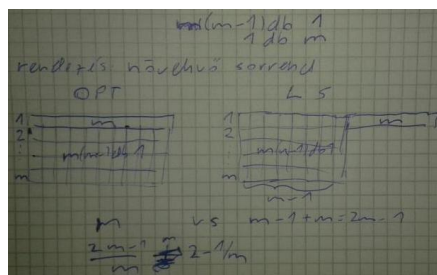 m(m-1) db 1
1 db m
rendezés növekvő sorrend
OPT LS
1 m
2
m(m-1) db 1
m
1
2
m(m-1) db 1
m
m
m-1
m vs m-1+m=2m-1
2m-1/m = 2-1/m